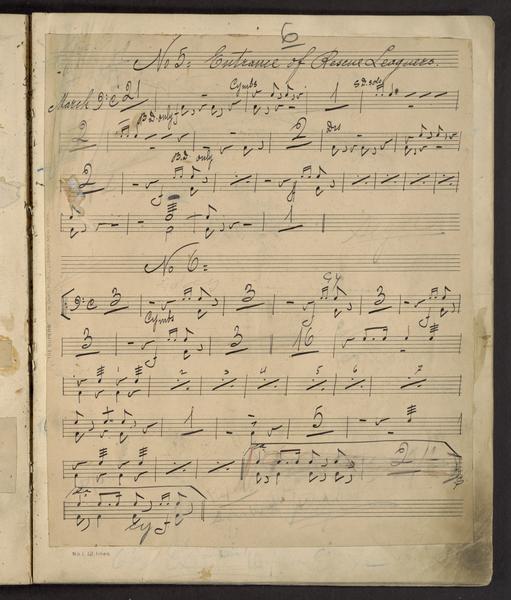 9
No 5: Entrance of Rescue Leaguers.
Cymbs
S.D. solo
March 2 1
B.D. only
2 2 Drs
B.D. only
2
1
No 6:
Cy
3 3 3
Cymbs
3 3 16
2 3 4 5 6 7
1 5
1a 2
2a
Cy
No. 1. 12 lines.